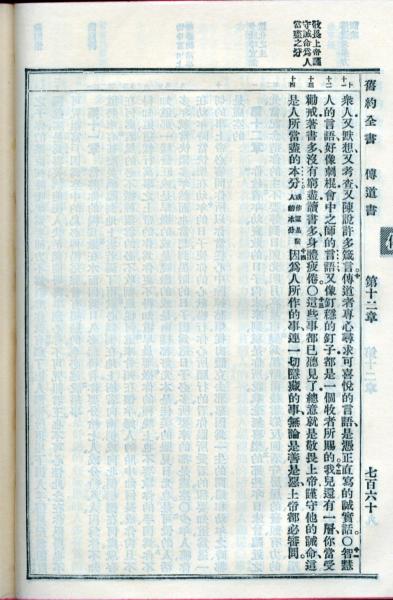 舊約全書 傳道書 第十二章 七百六十
敬畏上帝謹
守誡命爲人
當盡之分
衆人又默想又考查又陳說許多箴言十傳道者專心尋求可喜悅的言語是憑正直寫的誠實話○十一智慧
十二 人的言語好像刺棍會中之師的言語又像釘穩的釘子都是一個牧者所賜的十二我兒還有一層你當受
十三 勸戒著書多沒有窮盡讀書多身體疲倦○十三這些事都已聽見了總意就是敬畏上帝謹守他的誡命這
十四 是人所當盡的本分 人的本分 十四因爲人所作的事連一切隱藏的事無論是善是惡上帝都必審問